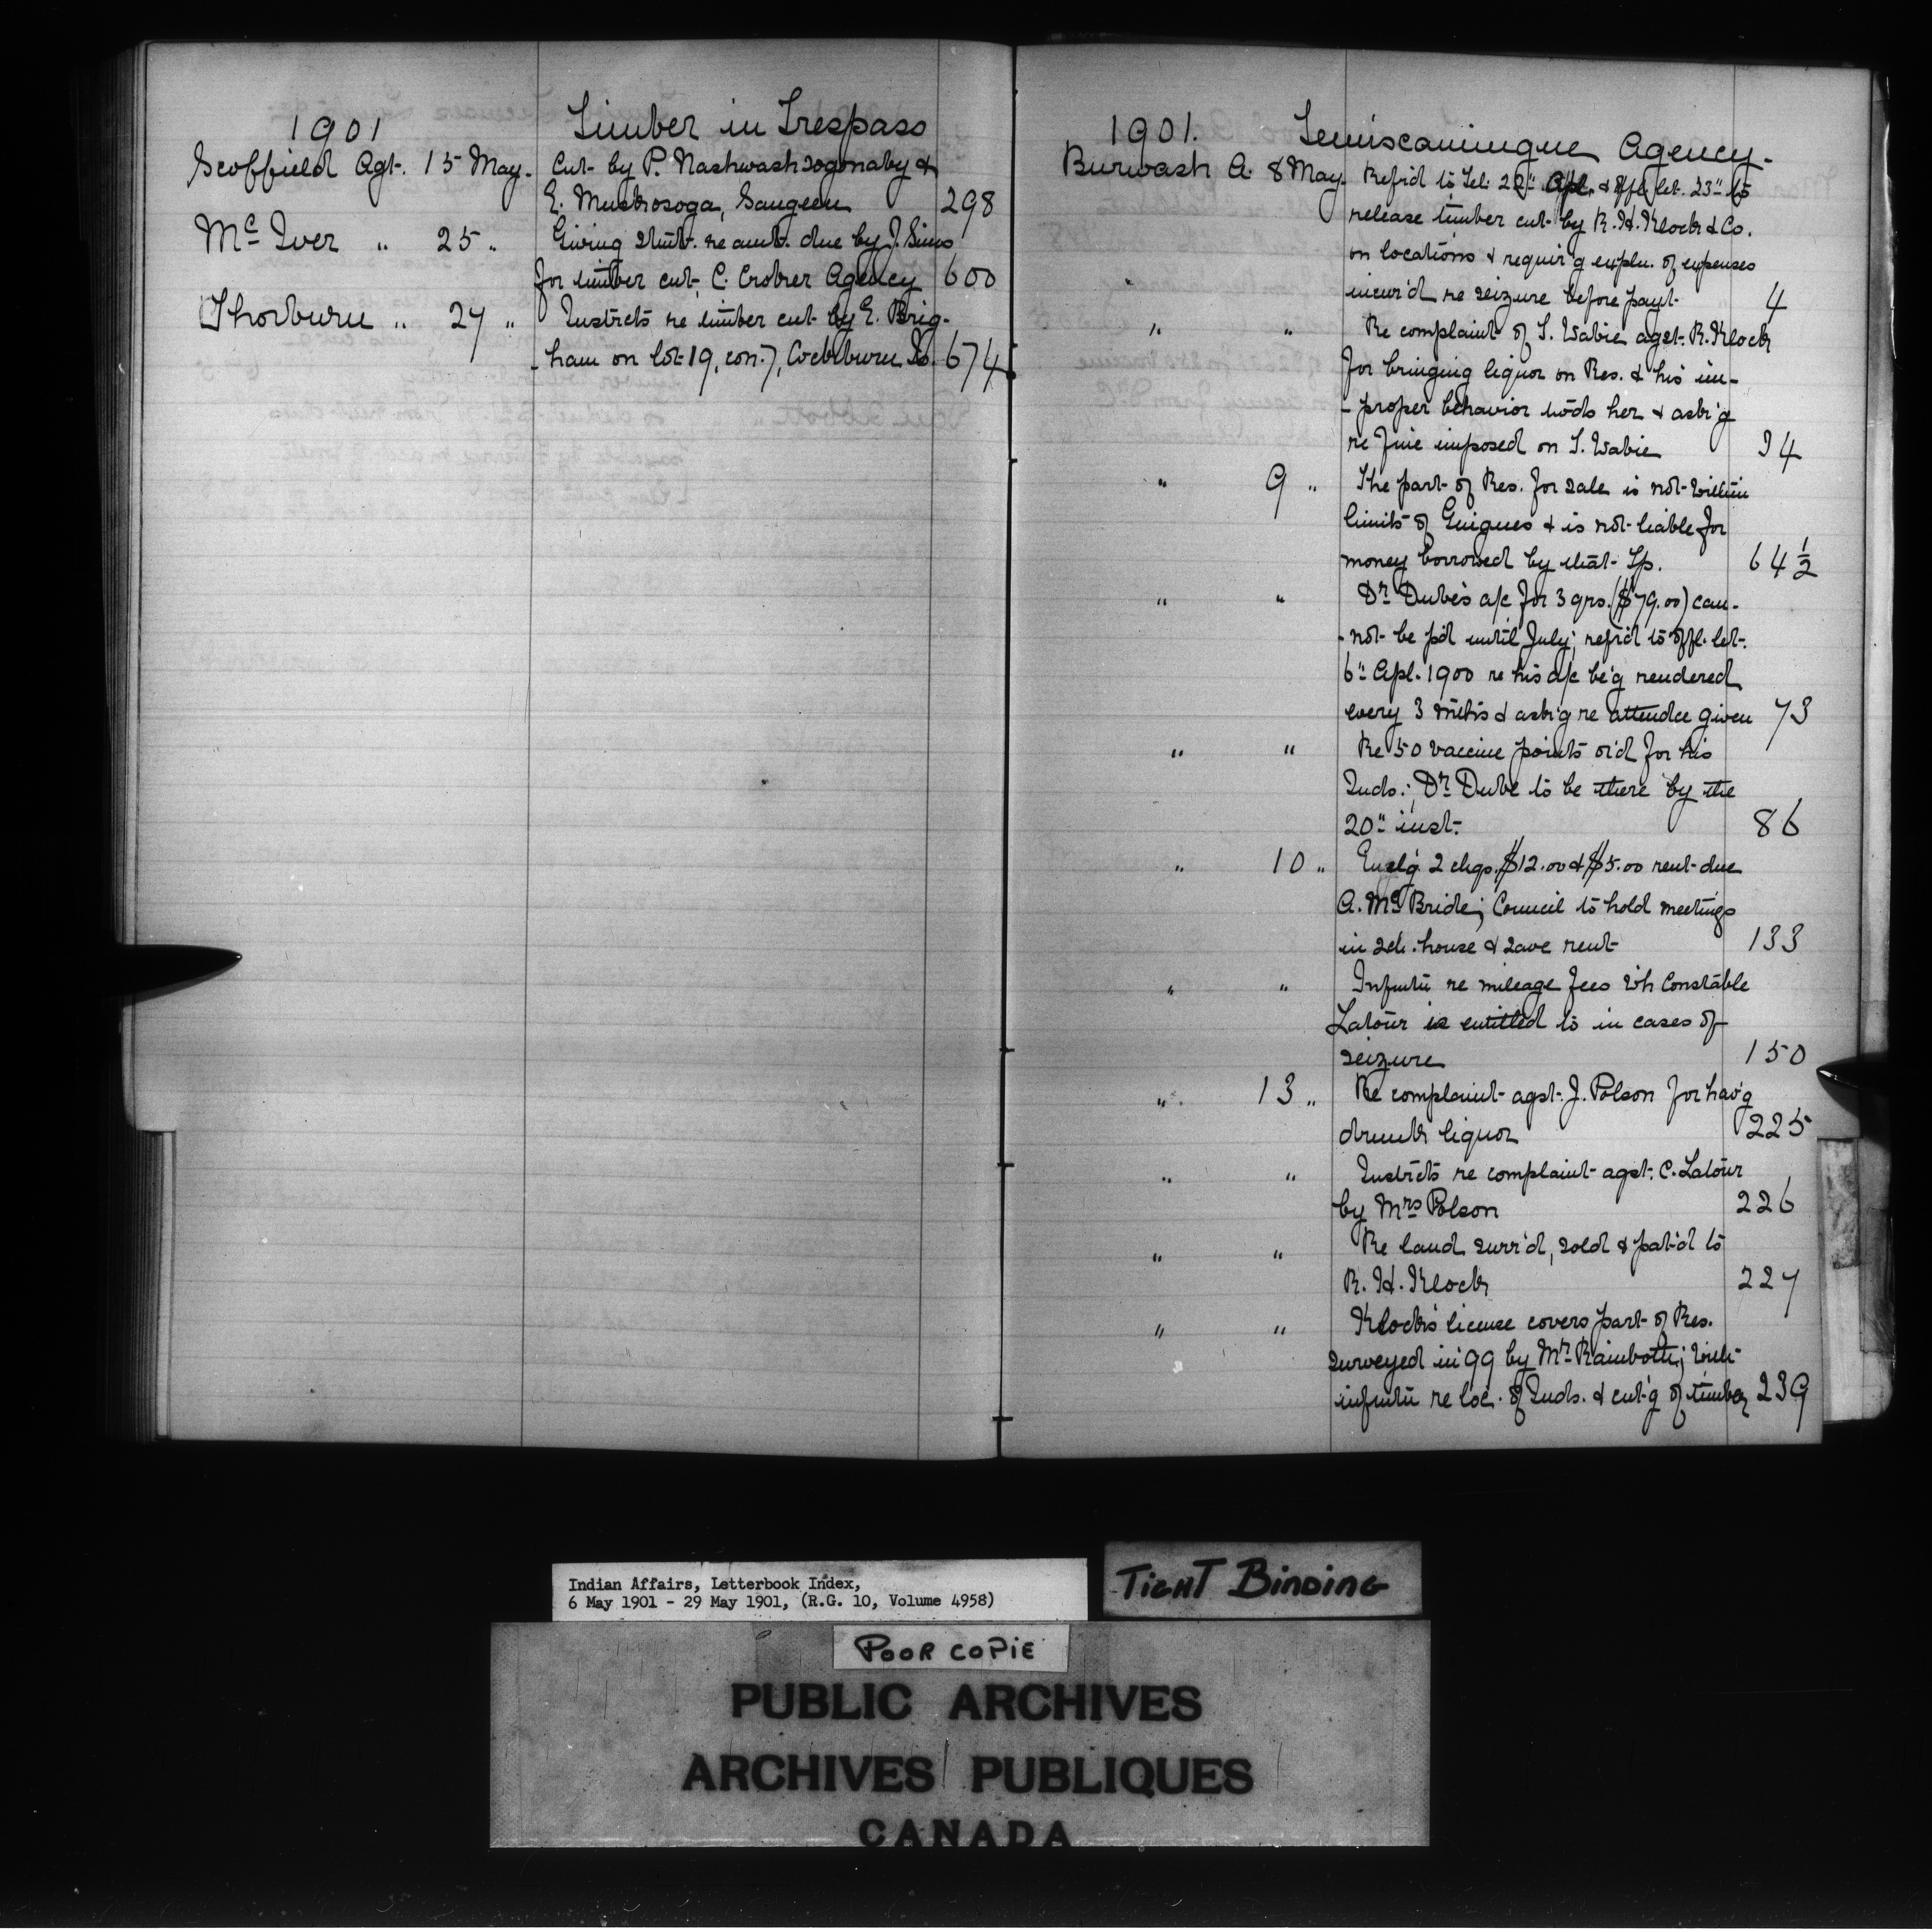 1901 Timber in Trespass
Scoffield Agt. 15 May. Cut by P. Nashwashzogonaby &
E. Muskosoga, Saugeen 298
McIver " 25 " Giving stmt. re amt. due by J. Sims
for timber cut, C. Croker Agency 600
Thorburn " 27 " Instrcts re timber cut by E. Brig-
-ham on lot 19, con. 7, Cockburn Is. 674
1901. Temiscamingue Agency.
Burwash A. 8 May Ref'd to Tel. 22" Apl. & offl. let. 23" to
release timber cut by R. H. Klock & Co.
on locations & requir'g expln. of expenses
incur'd re seizure before payt. 4
" " Re complaint of S. Wabie agst. R. Klock
for bringing liquor on Res. & his im-
-proper behavior to'ds her & ask'g
re fine imposed on S. Wabie 34
" 9 " The part of Res. for sale is not within
limits of Guigues & is not liable for
money borrowed by that Tp. 64 1/2
" " Dr Dubé's a/c for 3 qrs. ($79.00) can-
-not be p'd until July; ref'd to offl. let.
6" Apl. 1900 re his a/c be'g rendered
every 3 mths & ask'g re attendce given 73
" " Re 50 vaccine points or'd for his
Inds.; Dr Dubé to be there by the
20" inst. 86
" 10 " Encl'g 2 chqs. $12.00 & $5.00 rent due
A. McBride; Council to hold meetings
in sch. house & save rent 133
" " Infmtn re mileage fees wh Constable
Latour is entitled to in cases of
seizure 150
" 13 " Re complaint agst. J. Polson for hav'g
drunk liquor 225
" " Instrcts re complaint agst. C. Latour
by Mrs Polson 226
" " Re land surr'd, sold & pat'd to
R. H. Klock 227
" " Klock's license covers part of Res.
surveyed in '99 by Mr Rainboth; with
infmtn re loc. of Inds. & cut'g of timber 239
Indian Affairs, Letterbook Index,
6 May 1901 - 29 May 1901, (R.G. 10, Volume 4958)
TIGHT BINDING
POOR COPIE
PUBLIC ARCHIVES
ARCHIVES PUBLIQUES
CANADA